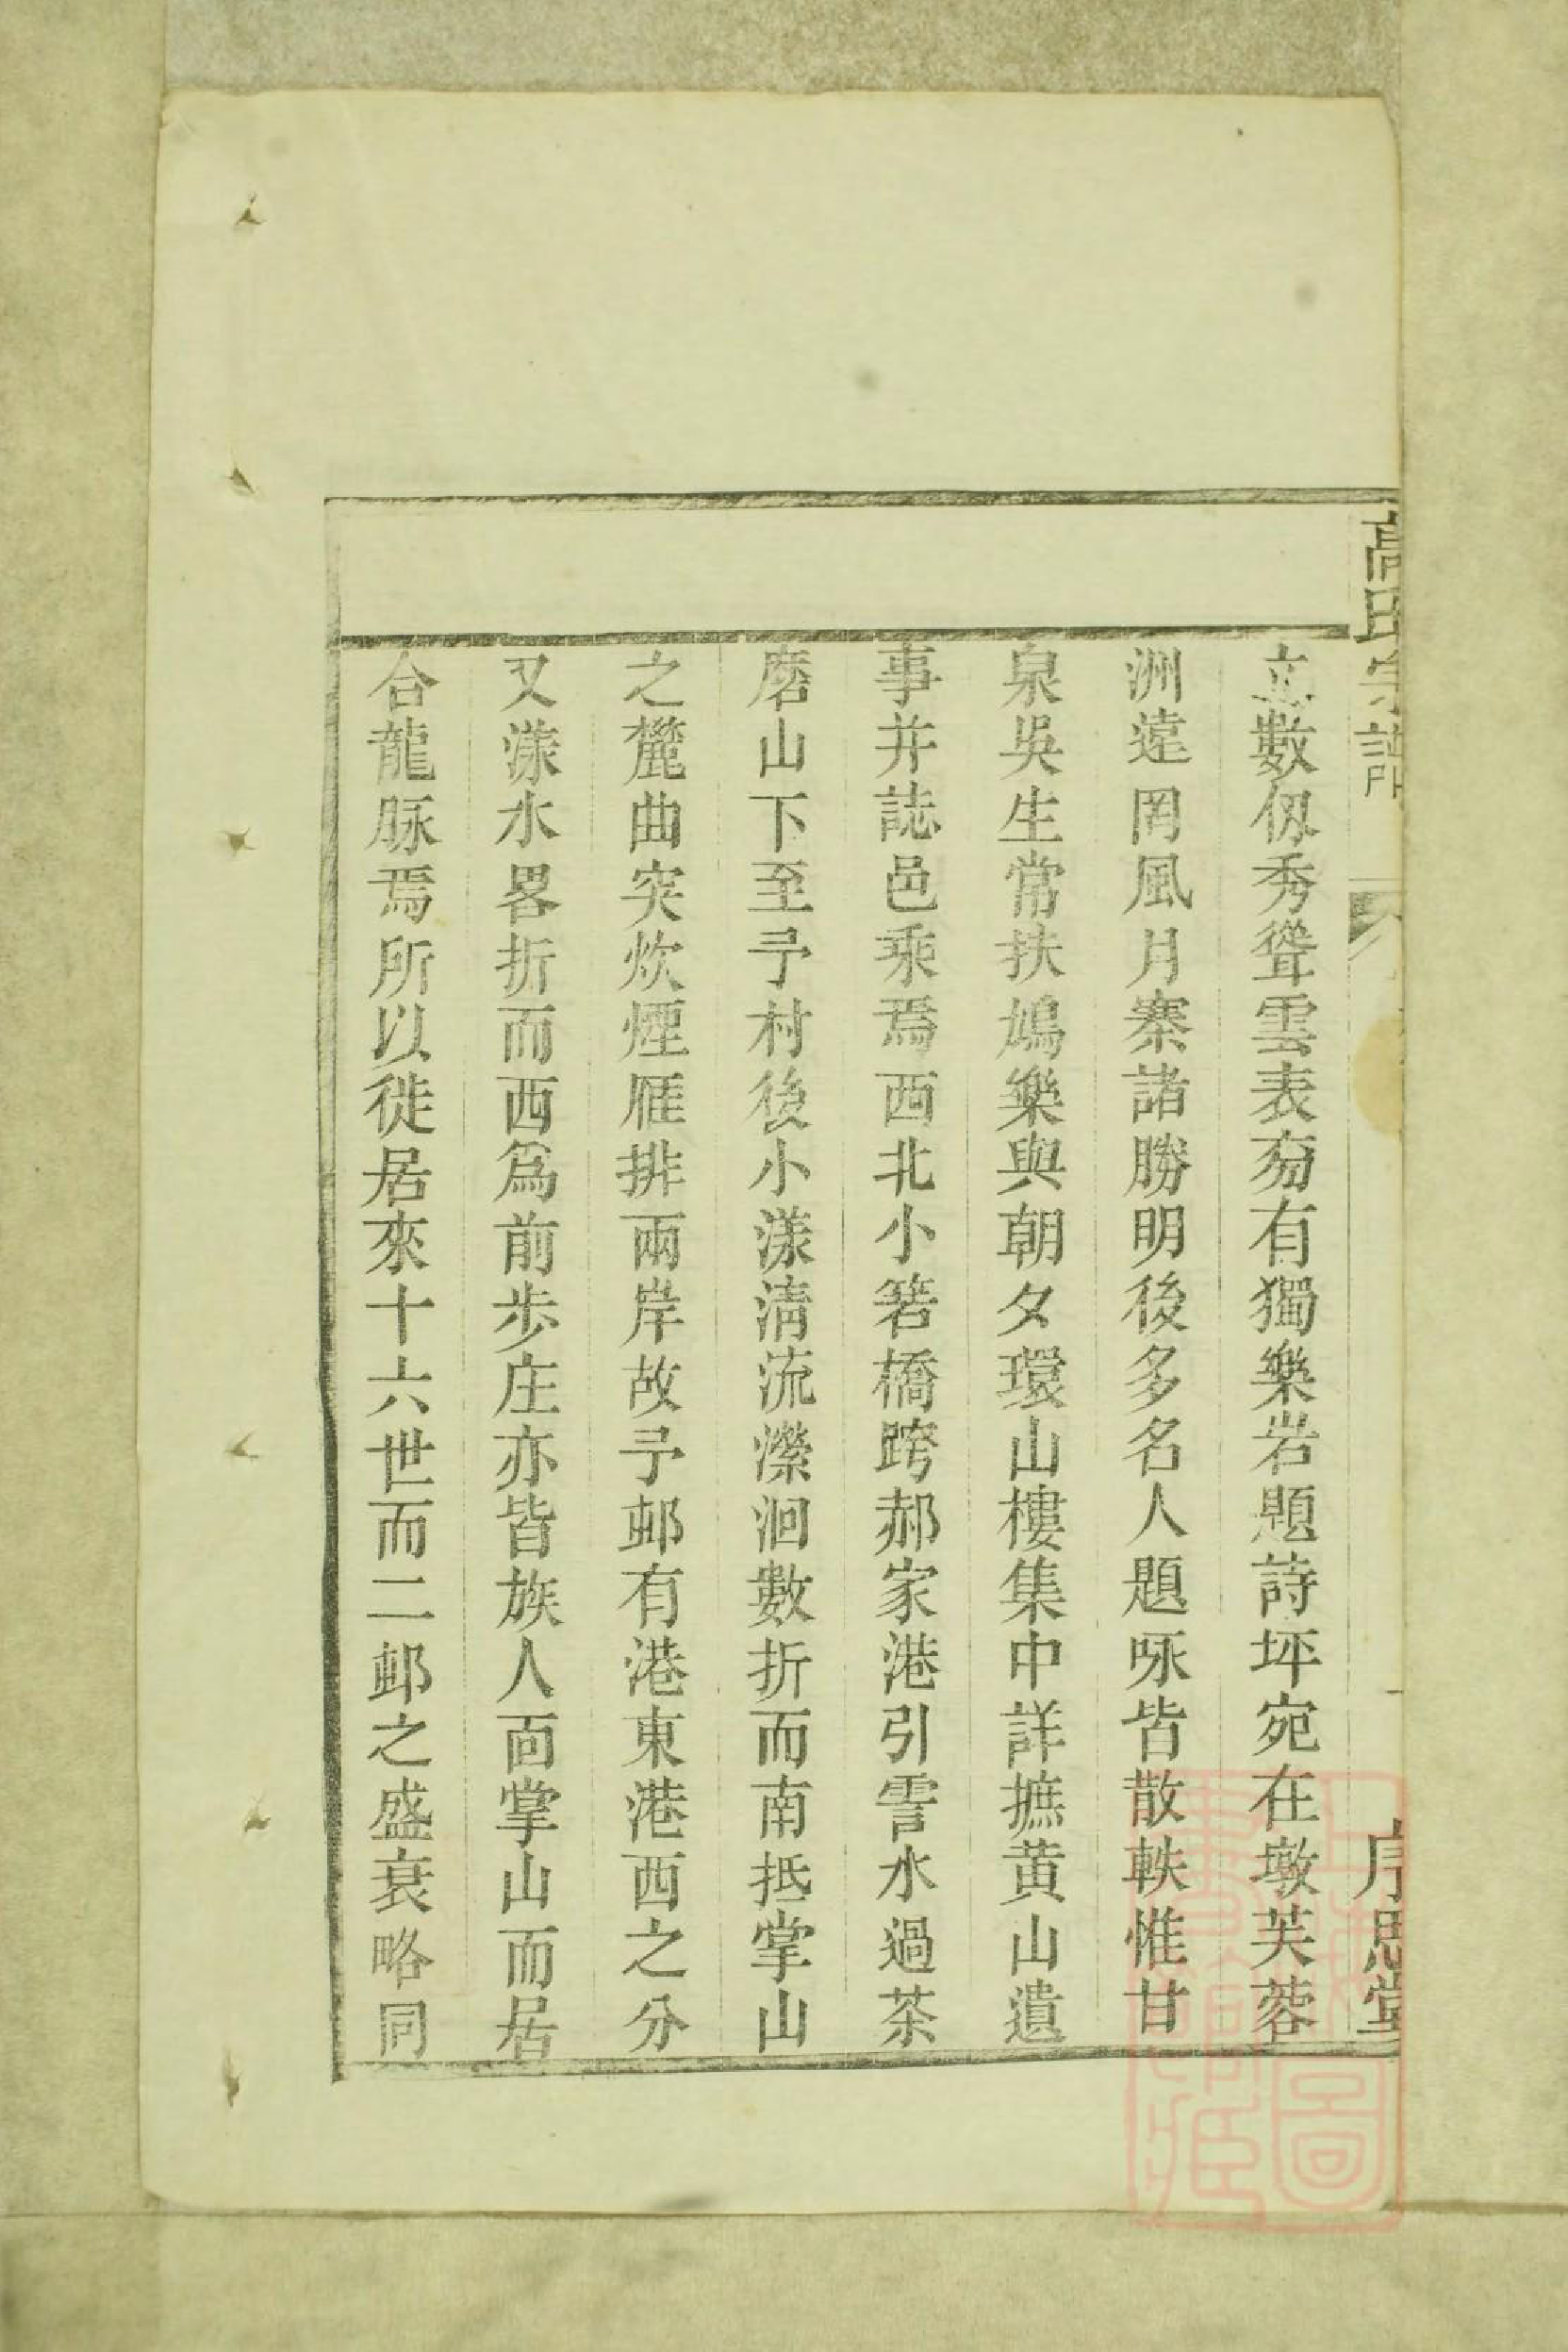 高氏宗譜
序思堂
立數仭秀聳雲表旁有獨樂岩題詩坪宛在墩芙蓉
洲遠罔風月寨諸勝明後多名人題咏皆散軼惟甘
泉吳生常扶鳩樂與朝夕環山樓集中詳摭黄山遺
事并誌邑乘焉西北小箬橋跨郝家港引霅水過茶
磨山下至予村後小漾淸流濴洄數折而南抵掌山
之麓曲突炊煙雁排兩岸故予邨有港東港西之分
又漾水畧折而西爲前步庄亦皆族人面掌山而居
合龍脉焉所以徙居來十六世而二邨之盛衰略同